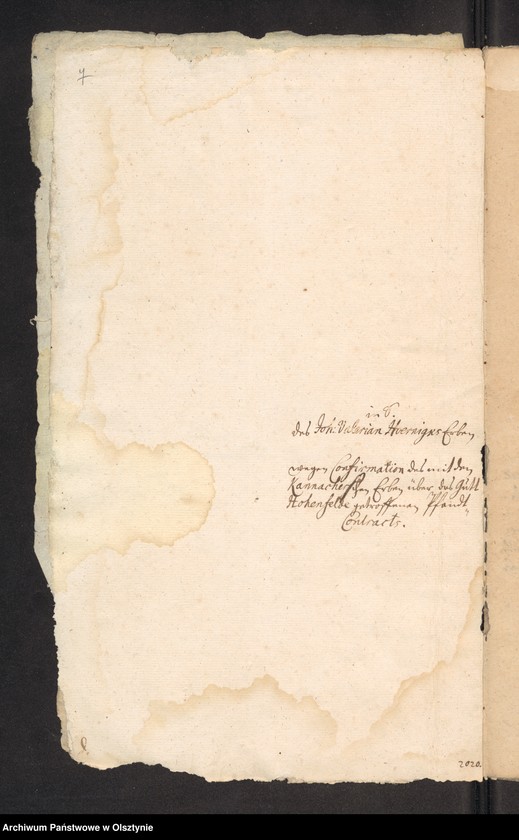 4
in S.
des Joh: Valerian Hoernigks Erben
wegen Confirmation des mit den
Kannacherschen Erben über das Gutt
Hohenfelde getroffenen Pfandt
Contracts.
8
2020.
Archiwum Państwowe w Olsztynie